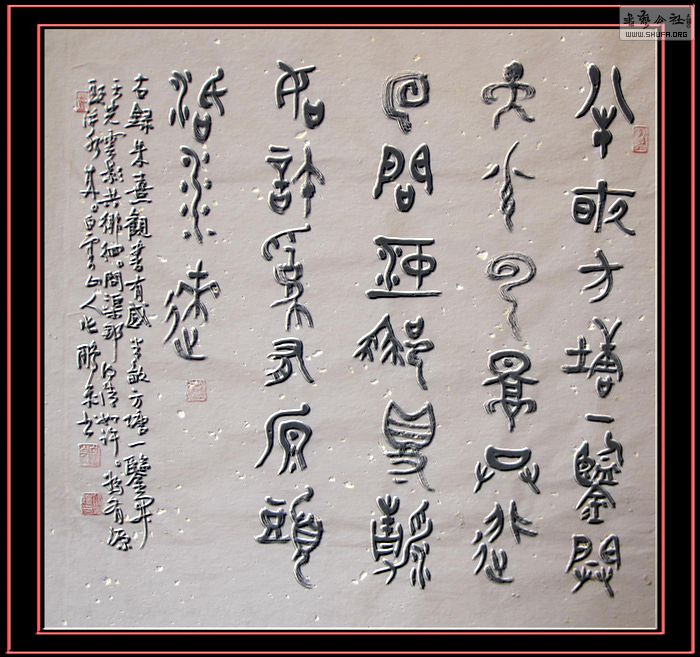 书艺公社
WWW.SHUFA.ORG
半畝方塘一鑒開
天光雲影共徘
回問渠那得清
如許為有源頭
活水來
右錄朱熹觀書有感半畝方塘一鑒開
天光雲影共徘徊。問渠那得清如許。為有源
頭活水來。白雲山人